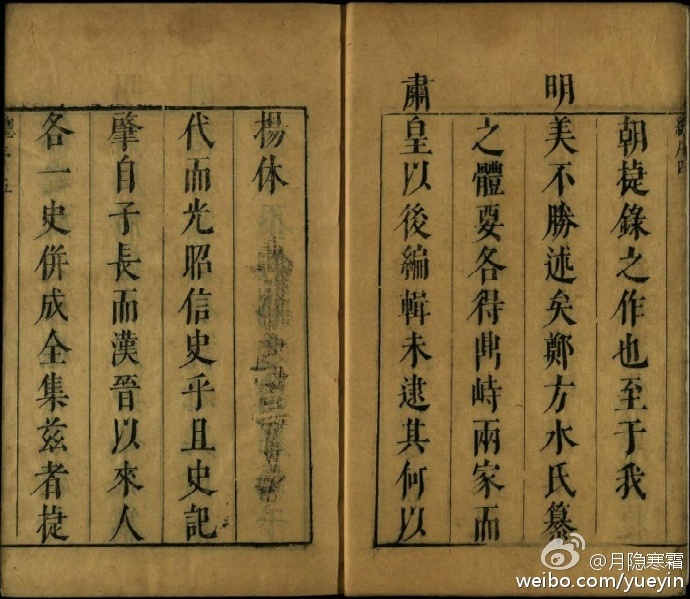 朝捷錄之作也至于我
明美不勝述矣鄭方水氏纂
之體要各得鼎峙兩家而
肅皇以後編輯未逮其何以
揚休
代而光昭信史乎且史記
肇自子長而漢晉以來人
各一史併成全集茲者捷
@月隐寒霜
weibo.com/yueyin